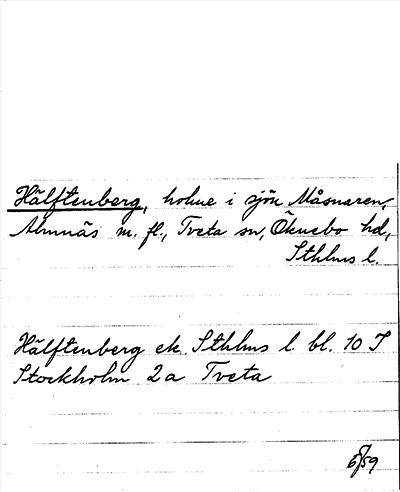 Hälftenberg, holme i sjön Måsnaren,
Almnäs m. fl., Tveta sn, Öknebo hd,
Sthlms l.
Hälftenberg ek. Sthlms l. bl. 10 J
Stockholm 2a Tveta